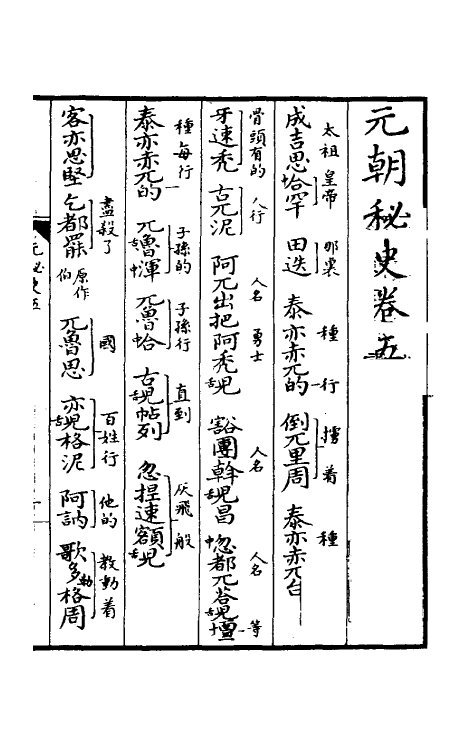 元朝秘史卷五
太祖 皇帝 那裏 種 行 擄着 種
成吉思中合罕 田迭 泰亦赤兀的 倒兀里周 泰亦赤兀台
骨頭有的 人行 人名 勇士 人名 人名 等
牙速禿 古兀泥 阿兀出把阿禿舌兒 豁團斡舌兒昌 中忽都兀荅舌兒壇
種每行 子孫的 子孫行 直到 灰飛般
泰亦赤兀的 兀舌魯中渾 兀舌魯中合 古舌兒帖列 忽捏速額舌兒
盡殺了 國 百姓行 他的 教動着
客亦思堅 乞都罷 原作伯 兀魯思 亦舌兒格泥 阿訥 歌多勒格周
元秘史五